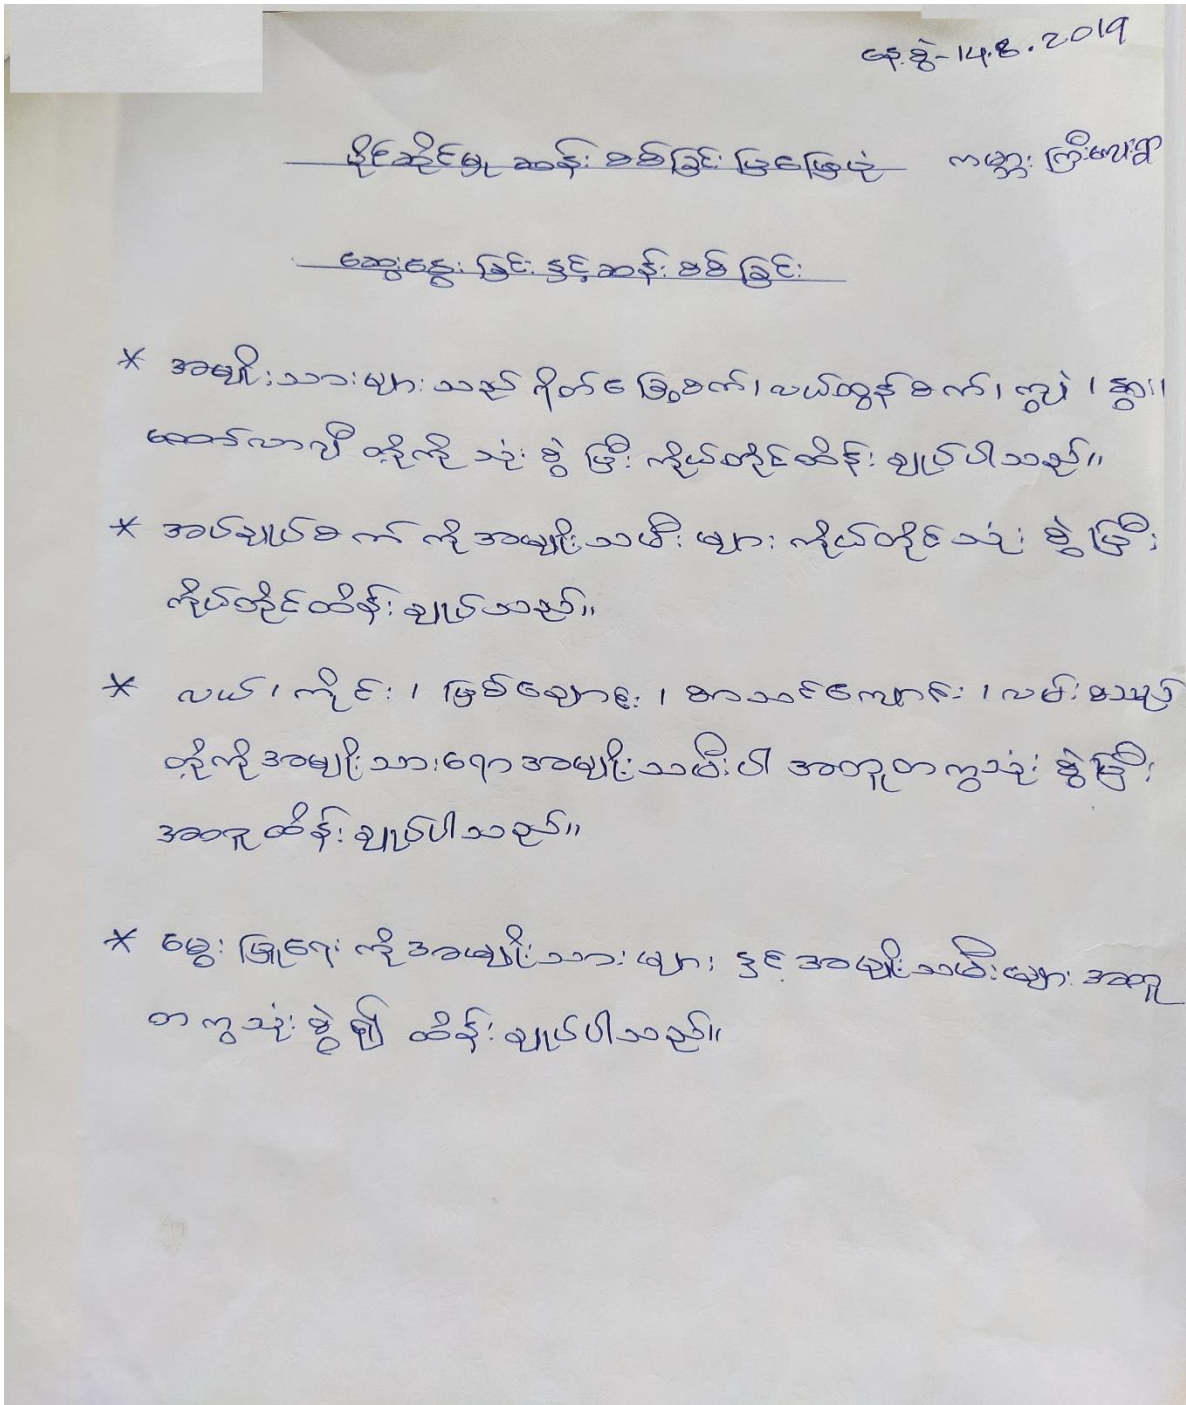 နေ့စွဲ- 14.8.2019
ပိုင်ဆိုင်မှု ဆန်းစစ်ခြင်း မြေပုံ ကမ္ဘား ကြီးလေးရွာ
ဆွေးနွေးခြင်း နှင့် ဆန်းစစ်ခြင်း
* အမျိုးသားများသည် ရိတ်ခြွေစက်၊ လယ်ထွန်စက်၊ ကျွဲ၊ နွား၊
ထော်လာဂျီ တို့ကို သုံးစွဲပြီး ကိုယ်တိုင်ထိန်းချုပ်ပါသည်။
* အပ်ချုပ်စက် ကို အမျိုးသမီးများ ကိုယ်တိုင် သုံးစွဲပြီး
ကိုယ်တိုင်ထိန်းချုပ်သည်။
* လယ်၊ ကိုင်း၊ မြစ်ချောင်း၊ စာသင်ကျောင်း၊ လမ်း စသည်
တို့ကို အမျိုးသားရော အမျိုးသမီးပါ အတူတကွသုံးစွဲပြီး
အတူထိန်းချုပ်ပါသည်။
* မွေးမြူရေး ကို အမျိုးသားများ နှင့် အမျိုးသမီးများ အတူ
တကွသုံးစွဲ၍ ထိန်းချုပ်ပါသည်။